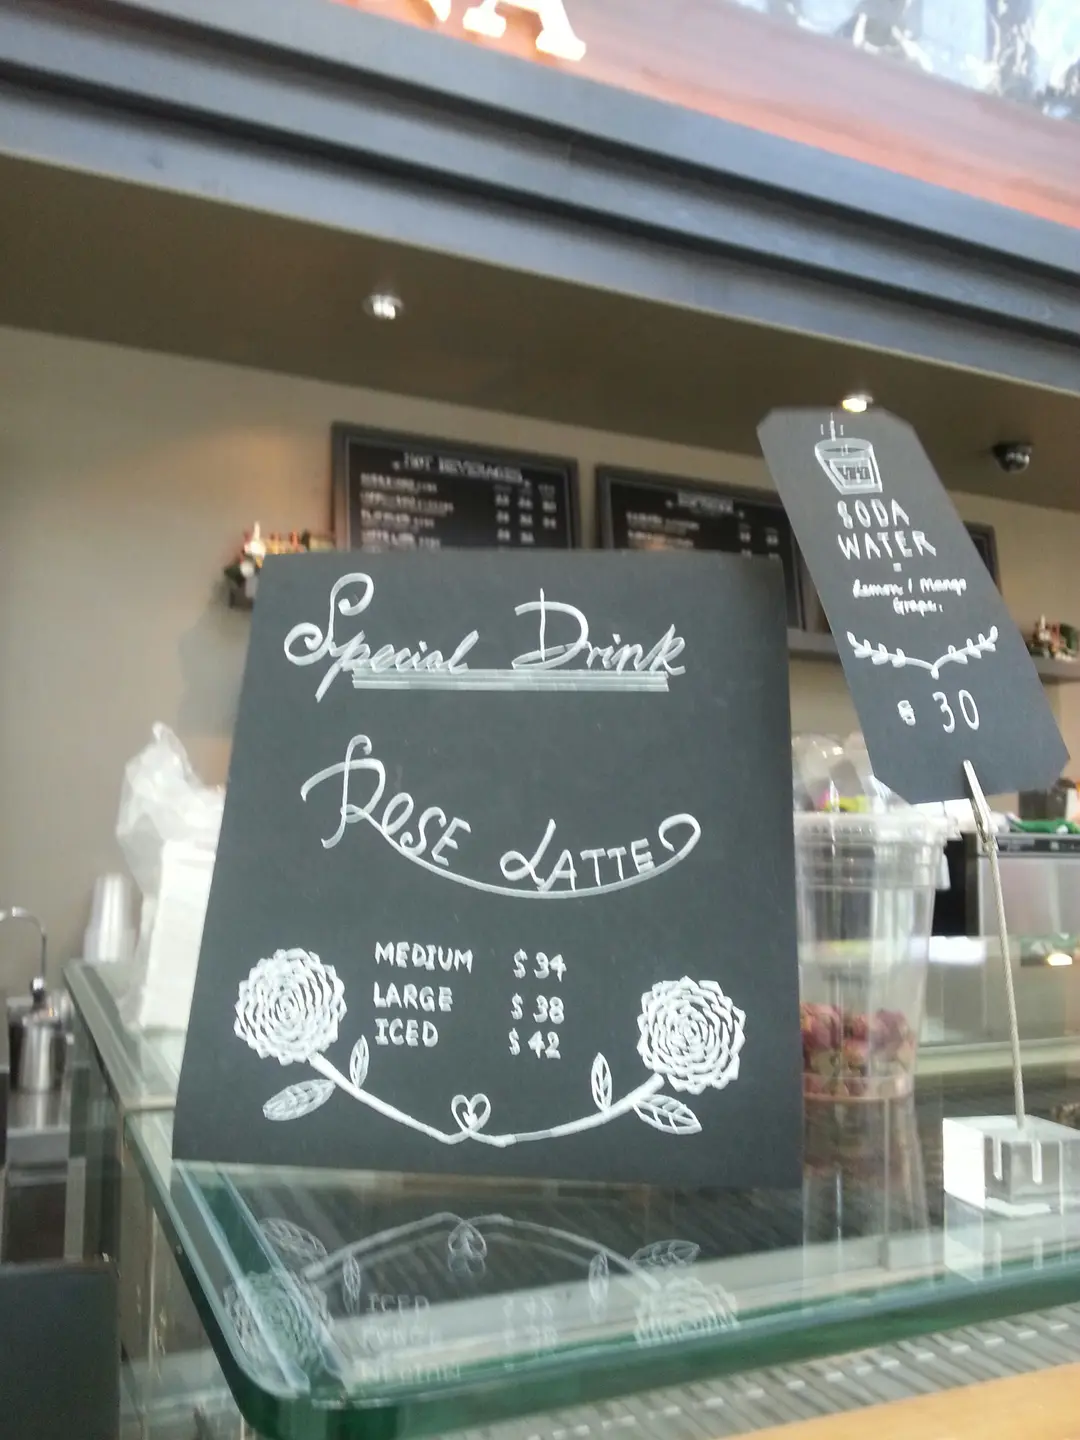 NA
HOT BEVERAGES
Special Drink
ROSE LATTE
MEDIUM $34
LARGE $38
ICED $42
SODA
WATER
Lemon / Mango
Grape.
$ 30